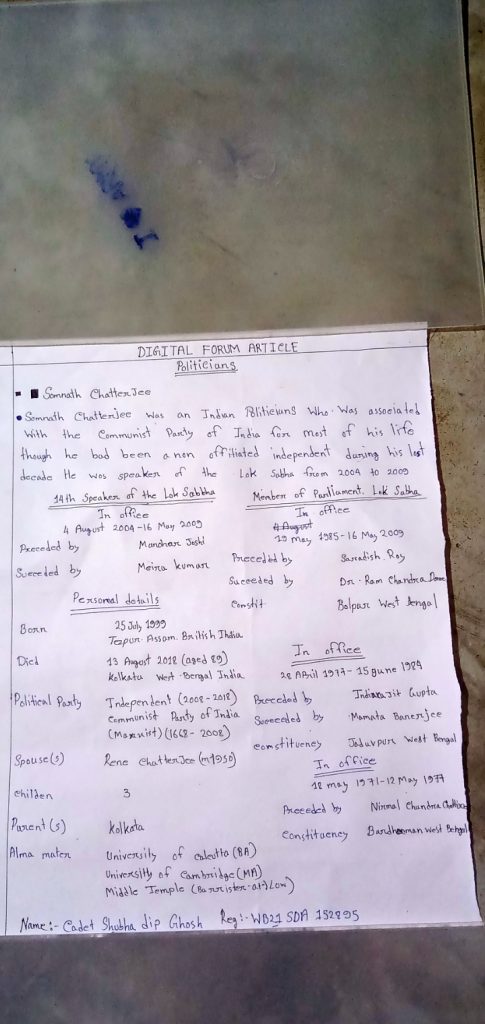 DIGITAL FORUM ARTICLE
Politicians
Somnath ChatterJee
Somnath Chatterjee was an Indian Politiciuns Who Was associated
With the Communist Party of India for most of his life
though he bad been a non offiliated independent daring his lost
decade He wos speaker of the Lok Sabha from 2004 to 2009
14th Speaker of the Lok Sabbha
In office
4 August 2004-16 May 2009
Preceded by Manohar Joshi
Sueeeded by Meira kumar
Member of Parliament. Lok Sabha
In office
4 August
19 may 1985-16 May 2009
Preceded by Saradish Roy
Suceeded by Dr. Ram Chandra Dome
Constit Bolpur West Bengal
Personal details
Born 25 July 1999
Tezpur Assam British India
Died 13 August 2018 (aged 89)
Kolkatu West-Bengal India
Political Party Independent (2008-2018)
Communist Party of India
(Marxuist) (1668-2008)
Spouse(s) Rene ChatterJee (m1950)
Childen 3
Parent(s) Kolkata
Alma mater University of calcutta (BA)
University of Cambridge (MA)
Middle Temple (Barrister-at-Low)
In office
28 April 1977-15 June 1984
Preceded by Indrajit Gupta
Sueeeded by Mamata Banerjee
constituency Jaduvpur West Bengal
In office
12 may 1971-12 May 1977
Preceded by Nirmal Chandra
Constituency Bardhaman West Bengal
Name:- Cadet Shubha dip Ghosh Reg:- WB21 SDA 152895